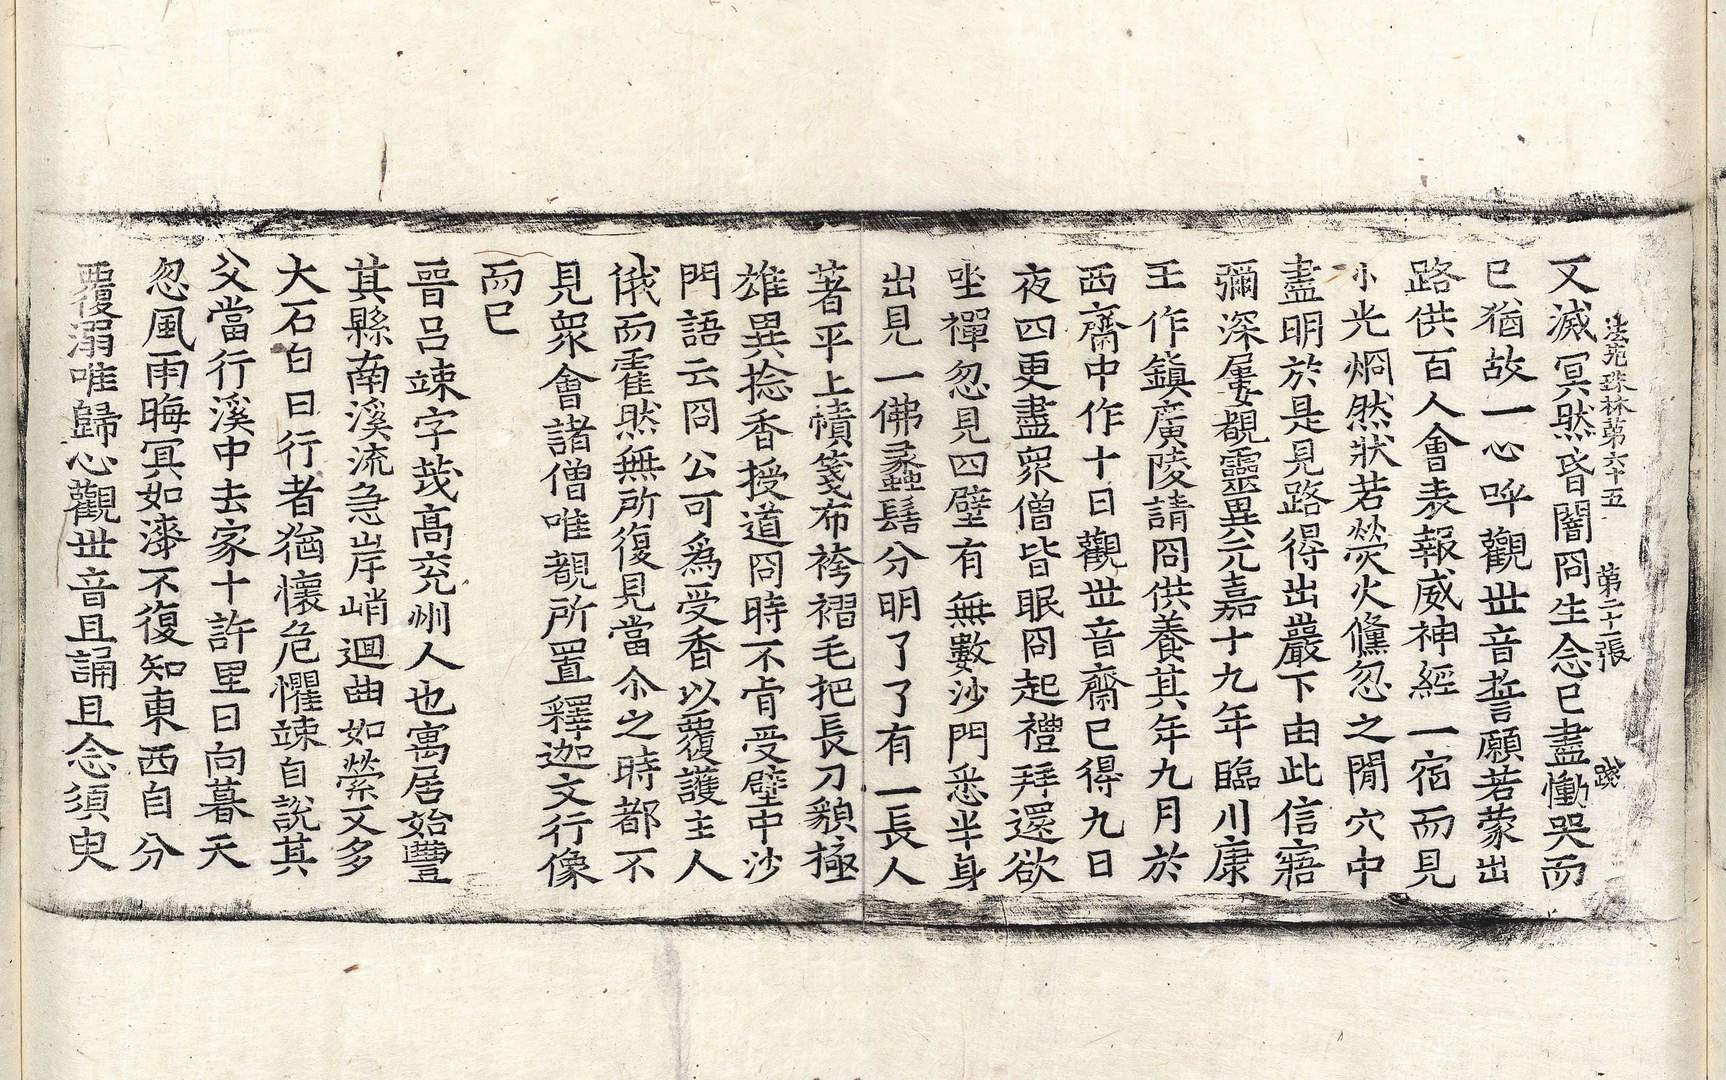 法苑珠林第六十五 第二十一張
又滅冥然昏闇冏生念已盡慟哭而
已猶故一心呼觀世音誓願若蒙出
路供百人會表報威神經一宿而見
小光烱然狀若熒火儵忽之閒穴中
盡明於是見路得出巖下由此信寤
彌深屢覩靈異元嘉十九年臨川康
王作鎮廣陵請冏供養其年九月於
西齋中作十日觀世音齋已得九日
夜四更盡眾僧皆眠冏起禮拜還欲
坐禪忽見四壁有無數沙門悉半身
出見一佛螽髻分明了了有一長人
著平上幘箋布袴褶毛把長刀貌極
雄異捻香授道冏時不肯受壁中沙
門語云冏公可為受香以覆護主人
俄而霍然無所復見當尒之時都不
見眾會諸僧唯覩所置釋迦文行像
而已
晉呂竦字茂高兖州人也寓居始豐
其縣南溪流急岸峭迴曲如縈又多
大石白日行者猶懷危懼竦自說其
父當行溪中去家十許里日向暮天
忽風雨晦冥如漆不復知東西自分
覆溺唯歸心觀世音且誦且念須臾